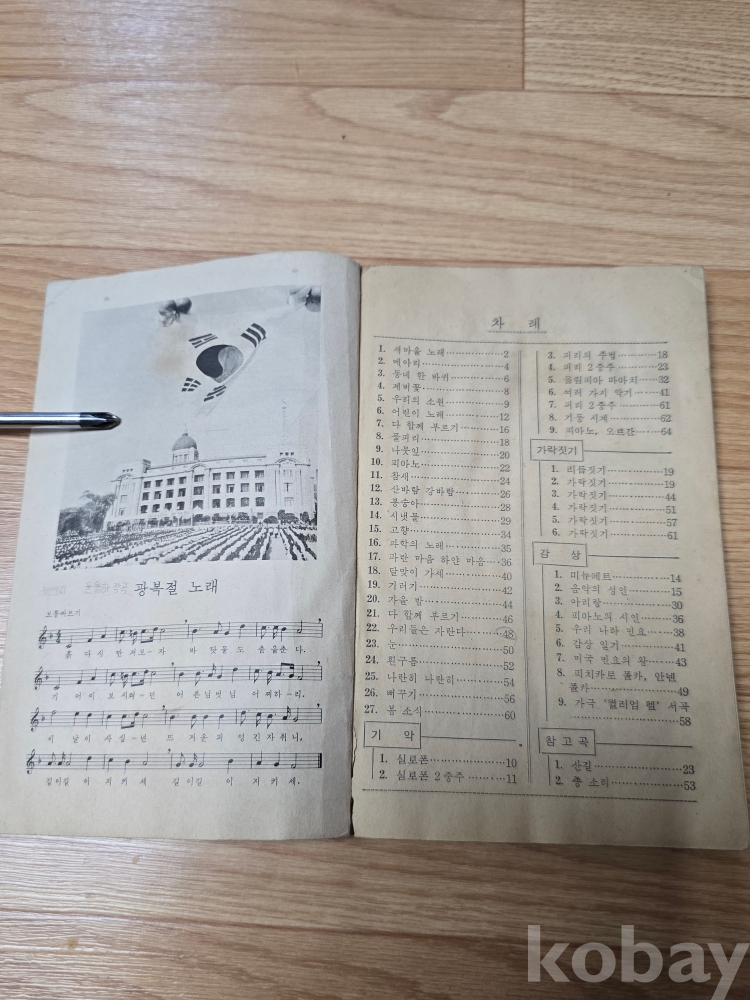 광복절 노래
보통빠르기
흙 다시 만져보자 바 닷물도 춤을춘 다.
기 어이 보시려던 어 른님벗님 어찌하리.
이 날이 사십년 뜨 거운피 엉긴자취니,
길이길 이 지키세 길이길 이 지키 세.
차 례
1. 새마을 노래 2
2. 메아리 4
3. 동네 한 바퀴 6
4. 제비꽃 8
5. 우리의 소원 9
6. 어린이 노래 12
7. 다 함께 부르기 16
8. 풀피리 18
9. 나뭇잎 20
10. 피아노 22
11. 참새 24
12. 산바람 강바람 26
13. 봉숭아 28
14. 시냇물 29
15. 고향 34
16. 과학의 노래 35
17. 파란 마음 하얀 마음 36
18. 달맞이 가세 40
19. 기러기 42
20. 가을 밤 44
21. 다 함께 부르기 46
22. 우리들은 자란다 48
23. 눈 50
24. 흰구름 52
25. 나란히 나란히 54
26. 뻐꾸기 56
27. 봄 소식 60
기 악
1. 실로폰 10
2. 실로폰 2중주 11
3. 피리의 주법 18
4. 피리 2중주 23
5. 올림피아 마아치 32
6. 여러 가지 악기 41
7. 피리 2중주 61
8. 기둥 시계 62
9. 피아노, 오르간 64
가락짓기
1. 리듬짓기 19
2. 가락짓기 19
3. 가락짓기 44
4. 가락짓기 51
5. 가락짓기 57
6. 가락짓기 61
감 상
1. 미뉴에트 14
2. 음악의 성인 15
3. 아리랑 30
4. 피아노의 시인 36
5. 우리 나라 민요 38
6. 감상 일기 41
7. 미국 민요의 왕 43
8. 피치카토 폴카, 안넨
폴카 49
9. 가극 '윌리엄 텔' 서곡
58
참고곡
1. 산길 23
2. 종 소리 53
kobay